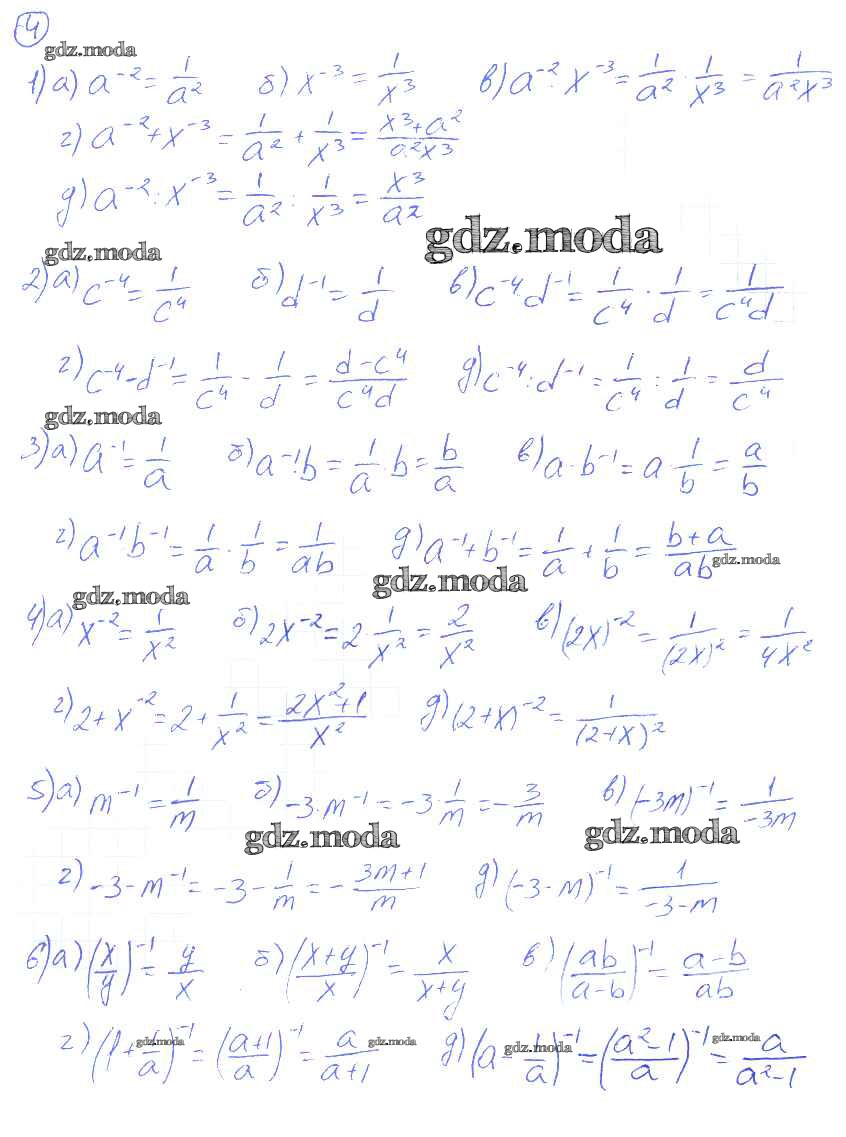 4
gdz.moda
1) а) a⁻² = 1/a² б) x⁻³ = 1/x³ в) a⁻² · x⁻³ = 1/a² · 1/x³ = 1/(a²x³)
г) a⁻² + x⁻³ = 1/a² + 1/x³ = (x³+a²)/(a²x³)
д) a⁻² : x⁻³ = 1/a² : 1/x³ = x³/a²
gdz.moda
gdz.moda
2) а) c⁻⁴ = 1/c⁴ б) d⁻¹ = 1/d в) c⁻⁴d⁻¹ = 1/c⁴ · 1/d = 1/(c⁴d)
г) c⁻⁴ - d⁻¹ = 1/c⁴ - 1/d = (d-c⁴)/(c⁴d) д) c⁻⁴ : d⁻¹ = 1/c⁴ : 1/d = d/c⁴
gdz.moda
3) а) a⁻¹ = 1/a б) a⁻¹·b = 1/a · b = b/a в) a·b⁻¹ = a · 1/b = a/b
г) a⁻¹b⁻¹ = 1/a · 1/b = 1/(ab) д) a⁻¹ + b⁻¹ = 1/a + 1/b = (b+a)/(ab)
gdz.moda
gdz.moda
gdz.moda
4) а) x⁻² = 1/x² б) 2x⁻² = 2 · 1/x² = 2/x² в) (2x)⁻² = 1/(2x)² = 1/(4x²)
г) 2 + x⁻² = 2 + 1/x² = (2x²+1)/x² д) (2+x)⁻² = 1/(2+x)²
5) а) m⁻¹ = 1/m б) -3·m⁻¹ = -3 · 1/m = -3/m в) (-3m)⁻¹ = 1/(-3m)
gdz.moda
gdz.moda
г) -3 - m⁻¹ = -3 - 1/m = -(3m+1)/m д) (-3-m)⁻¹ = 1/(-3-m)
6) а) (x/y)⁻¹ = y/x б) ((x+y)/x)⁻¹ = x/(x+y) в) (ab/(a-b))⁻¹ = (a-b)/(ab)
г) (1 + 1/a)⁻¹ = ((a+1)/a)⁻¹ = a/(a+1) д) (a - 1/a)⁻¹ = ((a²-1)/a)⁻¹ = a/(a²-1)
gdz.moda
gdz.moda
gdz.moda
gdz.moda